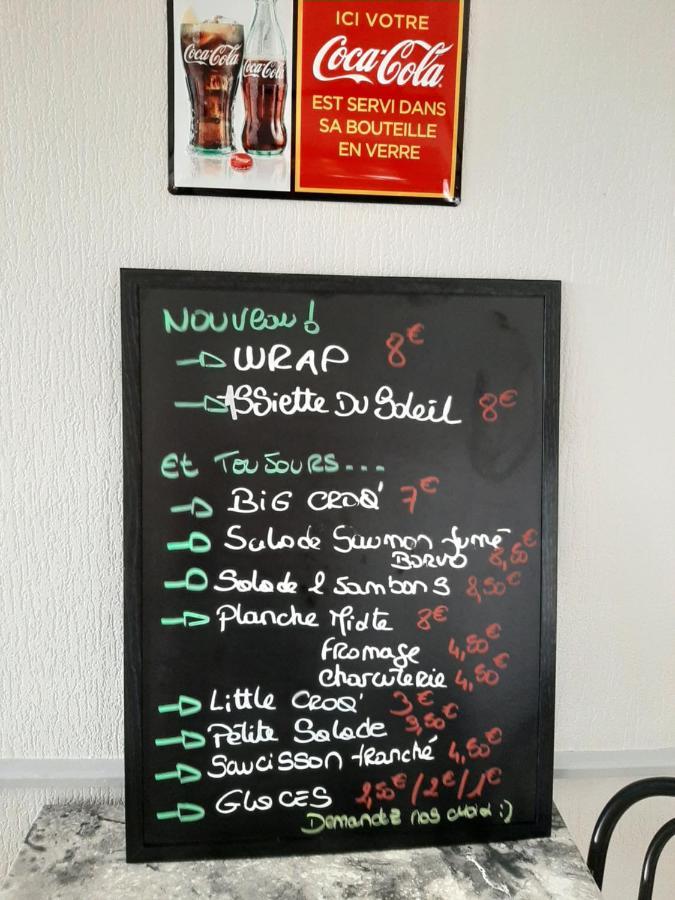 ICI VOTRE
Coca-Cola
EST SERVI DANS
SA BOUTEILLE
EN VERRE
Coca-Cola
Coca-Cola
NOUVEAU !
WRAP 8€
ASSiette DU Soleil 8€
Et TOUJOURS...
BIG CROQ' 7€
Salade Saumon fumé
8,50€
Salade 2 Jambons 8,50€
Planche Mixte 8€
fromage 4,50€
charcuterie 4,50€
Little CROQ' 3€
Pétite Salade 3,50€
Saucisson tranché 4,50€
GLACES 2,50€/2€/1€
Demandez nos choix :)